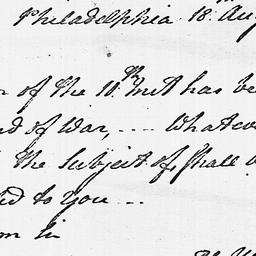 Philadelphia 18. Aug
of the 10th Inst has be
of War, .... Whateve
the Subject of, Shall
to You ...